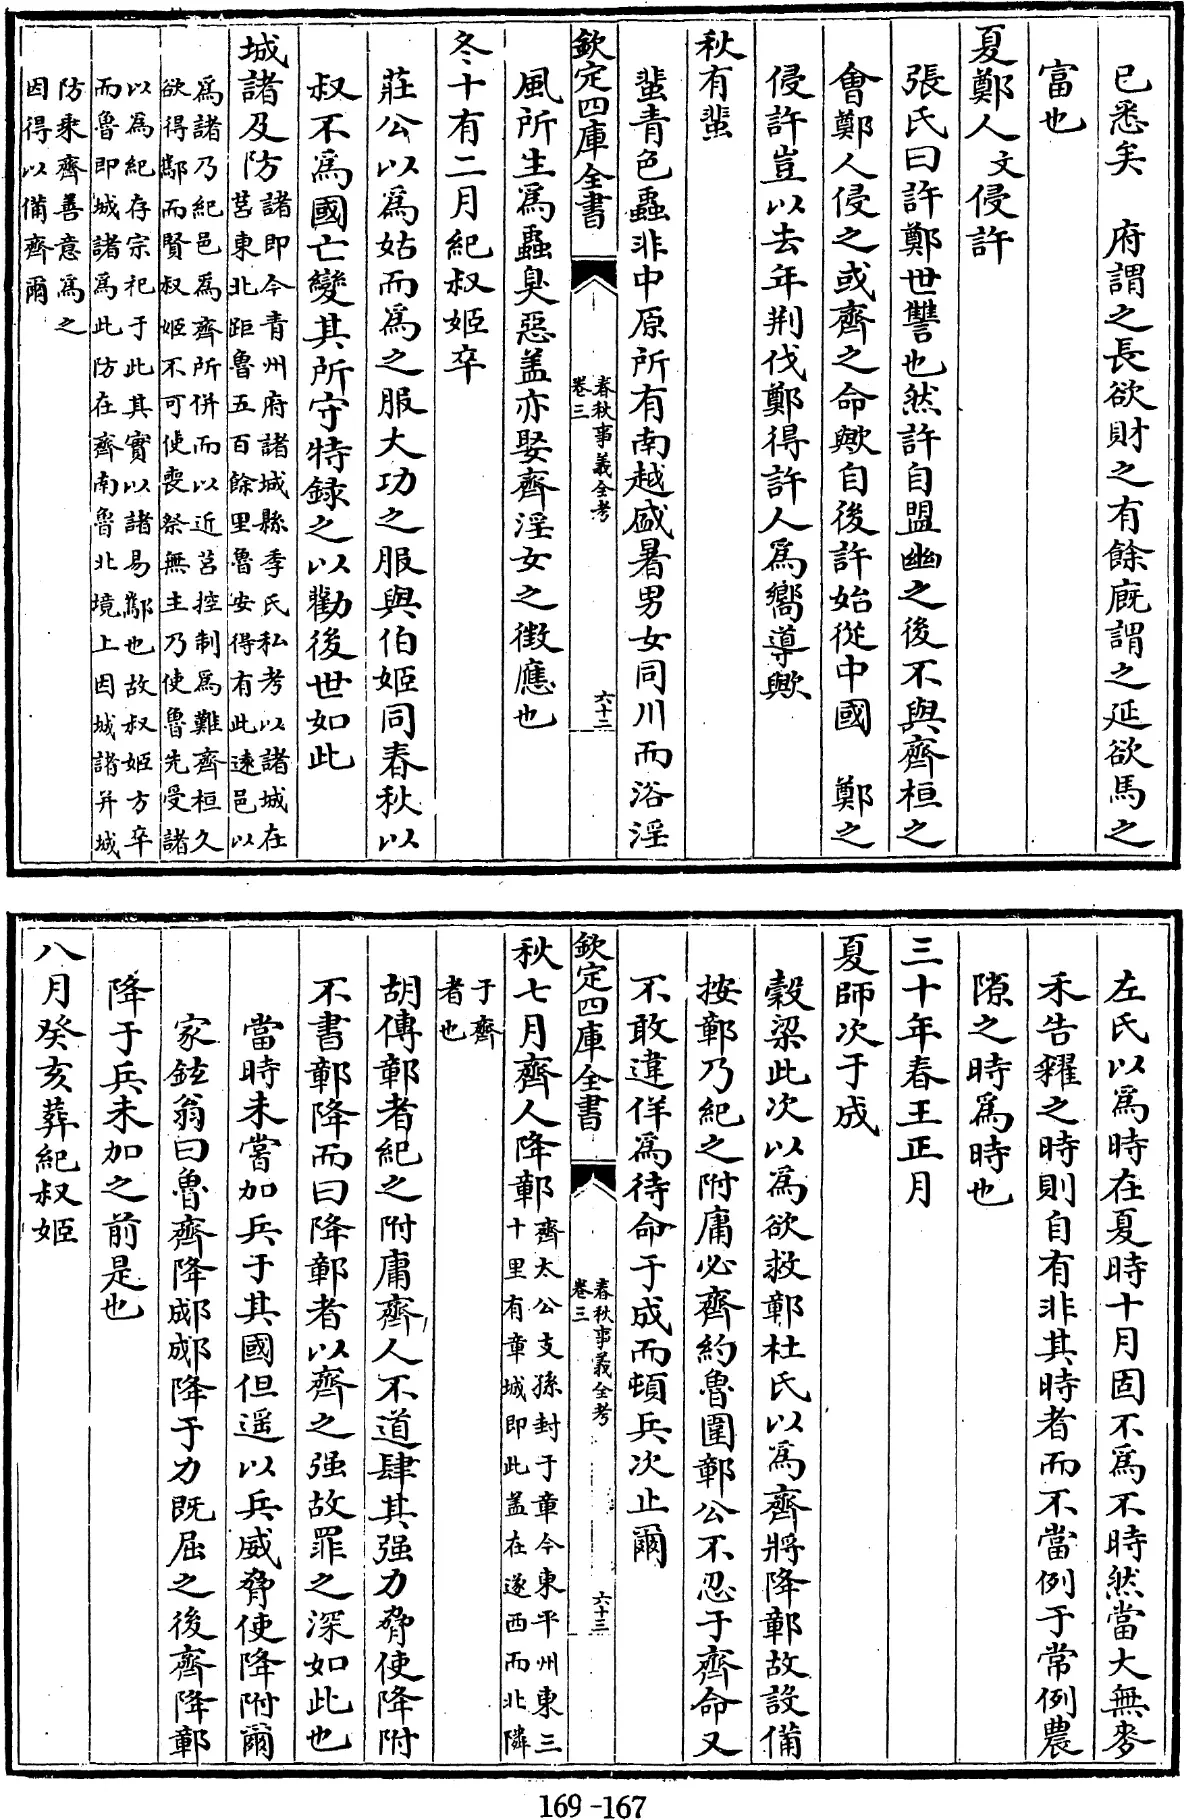 已悉矣　府謂之長欲財之有餘廐謂之延欲馬之
富也
夏鄭人文侵許
張氏曰許鄭世讐也然許自盟幽之後不與齊桓之
會鄭人侵之或齊之命歟自後許始從中國　鄭之
侵許豈以去年荆伐鄭得許人爲嚮導歟
秋有蜚
蜚青色蟲非中原所有南越盛暑男女同川而浴淫
欽定四庫全書
春秋事義全考
卷三
六十二
風所生爲蟲臭惡盖亦娶齊淫女之徴應也
冬十有二月紀叔姬卒
莊公以爲姑而爲之服大功之服與伯姬同春秋以
叔不爲國亡變其所守特録之以勸後世如此
城諸及防
諸即今青州府諸城縣季氏私考以諸城在
莒東北距魯五百餘里魯安得有此逺邑以
爲諸乃紀邑爲齊所併而以近莒控制爲難齊桓久
欲得鄑而賢叔姬不可使喪祭無主乃使魯先受諸
以爲紀存宗祀于此其實以諸易鄑也故叔姬方卒
而魯即城諸爲此防在齊南魯北境上因城諸并城
防乘齊善意爲之
因得以備齊爾
左氏以爲時在夏時十月固不爲不時然當大無麥
禾告糴之時則自有非其時者而不當例于常例農
隙之時爲時也
三十年春王正月
夏師次于成
榖梁此次以爲欲救鄣杜氏以爲齊將降鄣故設備
按鄣乃紀之附庸必齊約魯圍鄣公不忍于齊命又
不敢違佯爲待命于成而頓兵次止爾
欽定四庫全書
春秋事義全考
卷三
六十三
秋七月齊人降鄣
齊太公支孫封于章今東平州東三
十里有章城即此盖在遂西而北隣
于齊
者也
胡傳鄣者紀之附庸齊人不道肆其强力脅使降附
不書鄣降而曰降鄣者以齊之强故罪之深如此也
當時未嘗加兵于其國但遥以兵威脅使降附爾
家鉉翁曰魯齊降郕郕降于力既屈之後齊降鄣
降于兵未加之前是也
八月癸亥葬紀叔姬
169-167